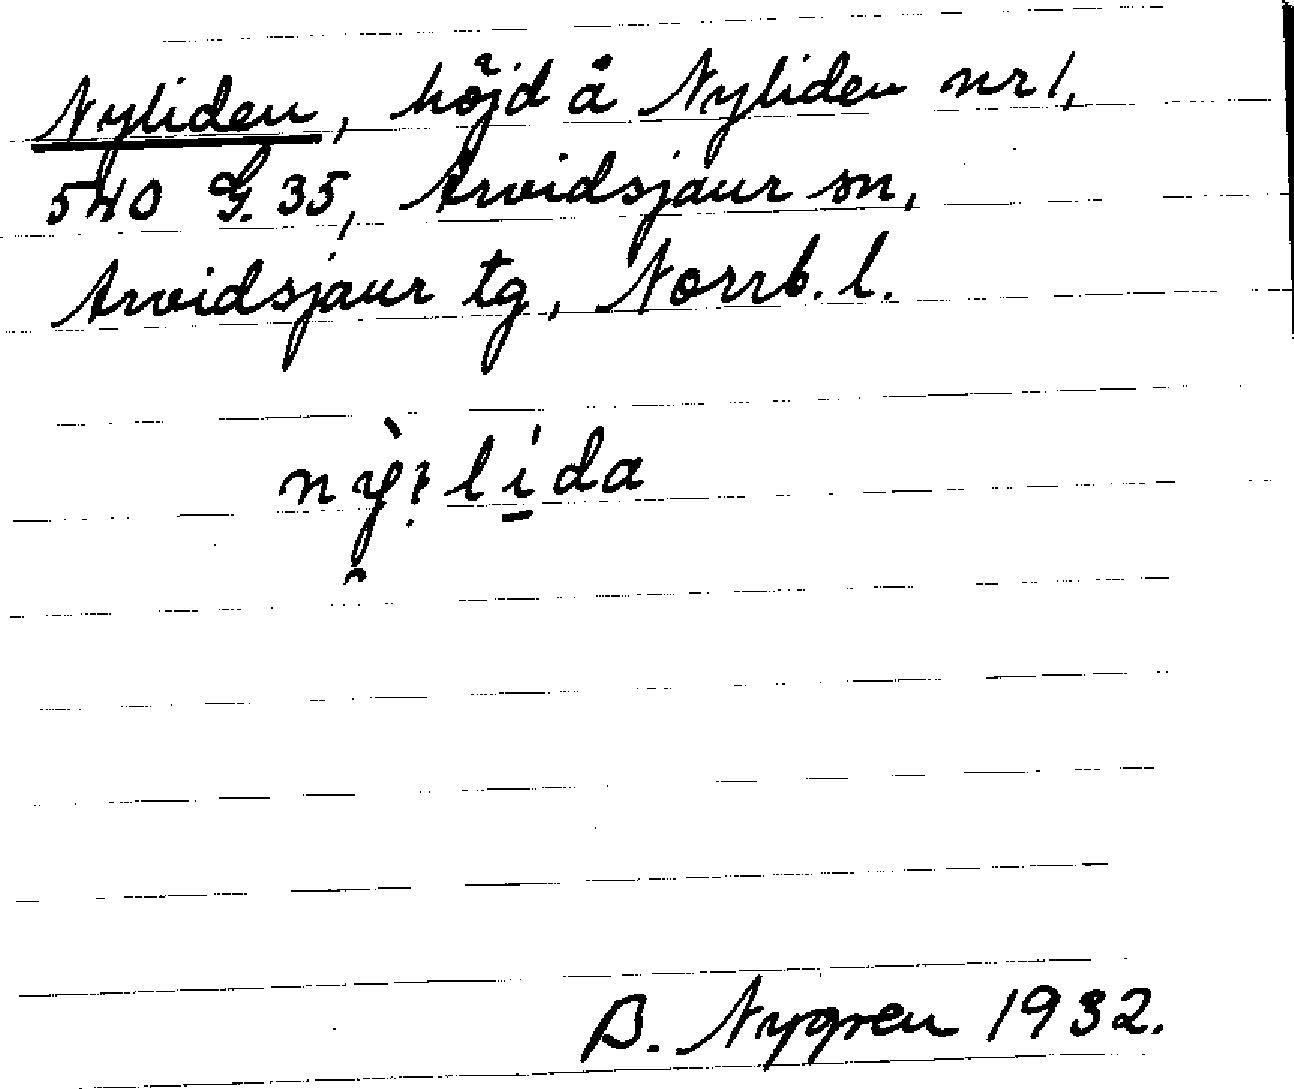 Nyliden, höjd å Nyliden nr 1,
540 G. 35, Arvidsjaur sn,
Arvidsjaur tg, Norrb. l.
nỳ:lida
B. Nygren 1932.